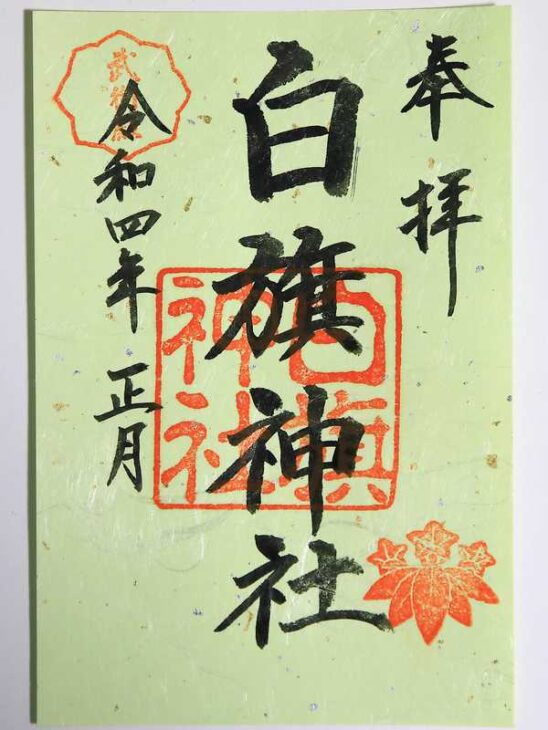 奉拝
白旗神社
白旗神社
令和四年 正月